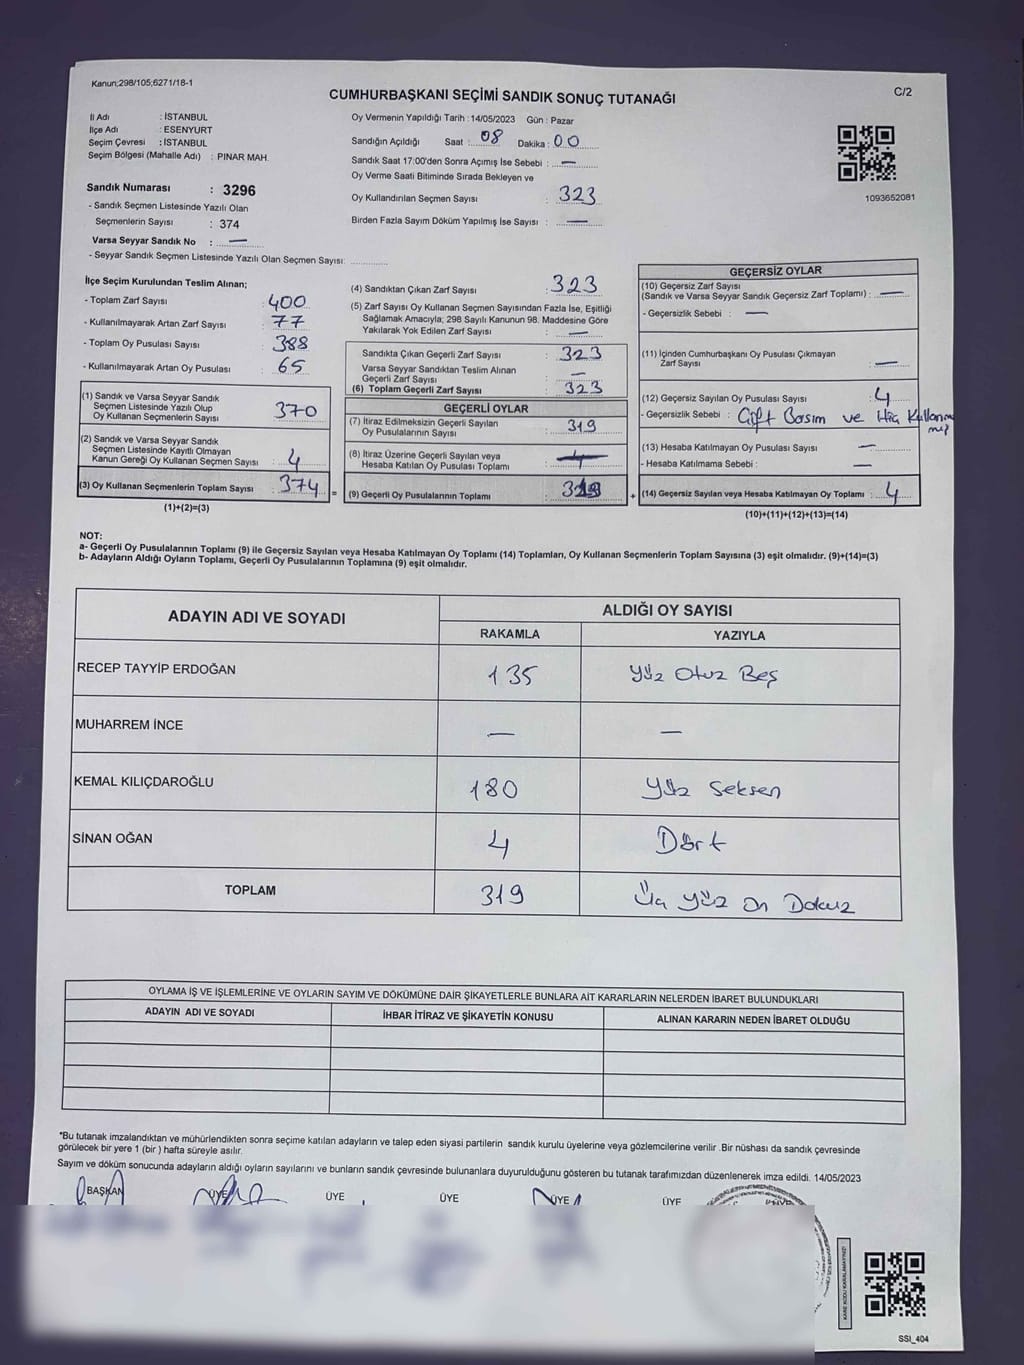 Kanun;298/105;6271/18-1
CUMHURBAŞKANI SEÇİMİ SANDIK SONUÇ TUTANAĞI
C/2
İl Adı : İSTANBUL
İlçe Adı : ESENYURT
Seçim Çevresi : İSTANBUL
Seçim Bölgesi (Mahalle Adı) : PINAR MAH.
Sandık Numarası : 3296
- Sandık Seçmen Listesinde Yazılı Olan
Seçmenlerin Sayısı : 374
Varsa Seyyar Sandık No : —
- Seyyar Sandık Seçmen Listesinde Yazılı Olan Seçmen Sayısı:
Oy Vermenin Yapıldığı Tarih : 14/05/2023 Gün : Pazar
Sandığın Açıldığı Saat : 08 Dakika : 00
Sandık Saat 17:00'den Sonra Açımış İse Sebebi : —
Oy Verme Saati Bitiminde Sırada Bekleyen ve
Oy Kullandırılan Seçmen Sayısı : 323
Birden Fazla Sayım Döküm Yapılmış İse Sayısı : —
1093652081
İlçe Seçim Kurulundan Teslim Alınan;
- Toplam Zarf Sayısı : 400
- Kullanılmayarak Artan Zarf Sayısı : 77
- Toplam Oy Pusulası Sayısı : 388
- Kullanılmayarak Artan Oy Pusulası : 65
(1) Sandık ve Varsa Seyyar Sandık
Seçmen Listesinde Yazılı Olup
Oy Kullanan Seçmenlerin Sayısı : 370
(2) Sandık ve Varsa Seyyar Sandık
Seçmen Listesinde Kayıtlı Olmayan
Kanun Gereği Oy Kullanan Seçmen Sayısı : 4
(3) Oy Kullanan Seçmenlerin Toplam Sayısı : 374
(1)+(2)=(3)
(4) Sandıktan Çıkan Zarf Sayısı : 323
(5) Zarf Sayısı Oy Kullanan Seçmen Sayısından Fazla İse, Eşitliği
Sağlamak Amacıyla; 298 Sayılı Kanunun 98. Maddesine Göre
Yakılarak Yok Edilen Zarf Sayısı : —
Sandıkta Çıkan Geçerli Zarf Sayısı : 323
Varsa Seyyar Sandıktan Teslim Alınan
Geçerli Zarf Sayısı : —
(6) Toplam Geçerli Zarf Sayısı : 323
GEÇERLİ OYLAR
(7) İtiraz Edilmeksizin Geçerli Sayılan
Oy Pusulalarının Sayısı : 319
(8) İtiraz Üzerine Geçerli Sayılan veya
Hesaba Katılan Oy Pusulası Toplamı :
= (9) Geçerli Oy Pusulalarının Toplamı : 319
GEÇERSİZ OYLAR
(10) Geçersiz Zarf Sayısı
(Sandık ve Varsa Seyyar Sandık Geçersiz Zarf Toplamı) : —
- Geçersizlik Sebebi : —
(11) İçinden Cumhurbaşkanı Oy Pusulası Çıkmayan
Zarf Sayısı : —
(12) Geçersiz Sayılan Oy Pusulası Sayısı : 4
- Geçersizlik Sebebi : Çift Basım ve Hiç Kullanmamış
(13) Hesaba Katılmayan Oy Pusulası Sayısı : —
- Hesaba Katılmama Sebebi : —
+ (14) Geçersiz Sayılan veya Hesaba Katılmayan Oy Toplamı : 4
(10)+(11)+(12)+(13)=(14)
NOT:
a- Geçerli Oy Pusulalarının Toplamı (9) ile Geçersiz Sayılan veya Hesaba Katılmayan Oy Toplamı (14) Toplamları, Oy Kullanan Seçmenlerin Toplam Sayısına (3) eşit olmalıdır. (9)+(14)=(3)
b- Adayların Aldığı Oyların Toplamı, Geçerli Oy Pusulalarının Toplamına (9) eşit olmalıdır.
ADAYIN ADI VE SOYADI
ALDIĞI OY SAYISI
RAKAMLA YAZIYLA
RECEP TAYYİP ERDOĞAN 135 Yüz Otuz Beş
MUHARREM İNCE — —
KEMAL KILIÇDAROĞLU 180 Yüz Seksen
SİNAN OĞAN 4 Dört
TOPLAM 319 Üç Yüz On Dokuz
OYLAMA İŞ VE İŞLEMLERİNE VE OYLARIN SAYIM VE DÖKÜMÜNE DAİR ŞİKAYETLERLE BUNLARA AİT KARARLARIN NELERDEN İBARET BULUNDUKLARI
ADAYIN ADI VE SOYADI İHBAR İTİRAZ VE ŞİKAYETİN KONUSU ALINAN KARARIN NEDEN İBARET OLDUĞU
*Bu tutanak imzalandıktan ve mühürlendikten sonra seçime katılan adayların ve talep eden siyasi partilerin sandık kurulu üyelerine veya gözlemcilerine verilir .Bir nüshası da sandık çevresinde
görülecek bir yere 1 (bir ) hafta süreyle asılır.
Sayım ve döküm sonucunda adayların aldığı oyların sayılarını ve bunların sandık çevresinde bulunanlara duyurulduğunu gösteren bu tutanak tarafımızdan düzenlenerek imza edildi. 14/05/2023
BAŞKAN ÜYE ÜYE ÜYE ÜYE ÜYE
KARE KODU KARALAMAYINIZ!
SSI_404